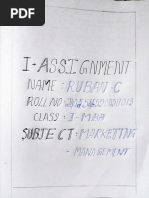 I-ASSIGNMENT
NAME : RUBAN C
ROLL NO
CLASS : I-MBA
SUBJECT: MARKETING
- MANAGEMENT